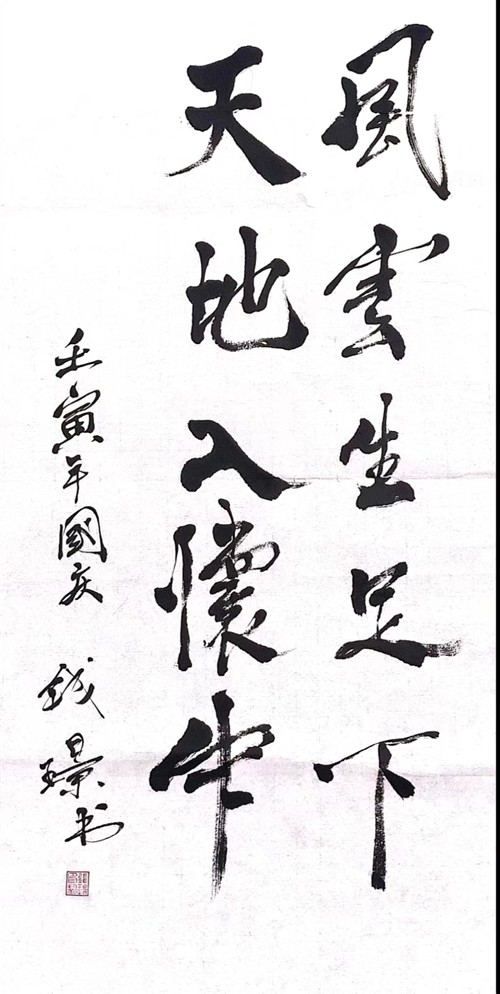 風雲生足下
天地入懷中
壬寅年國庆
钱璟书